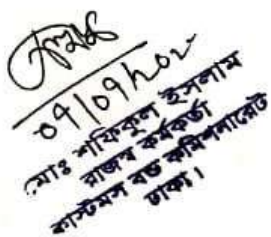 ০৭/০৭/২০২
মোঃ শফিকুল ইসলাম
রাজস্ব কর্মকর্তা
কাস্টমস বন্ড কমিশনারেট
ঢাকা।